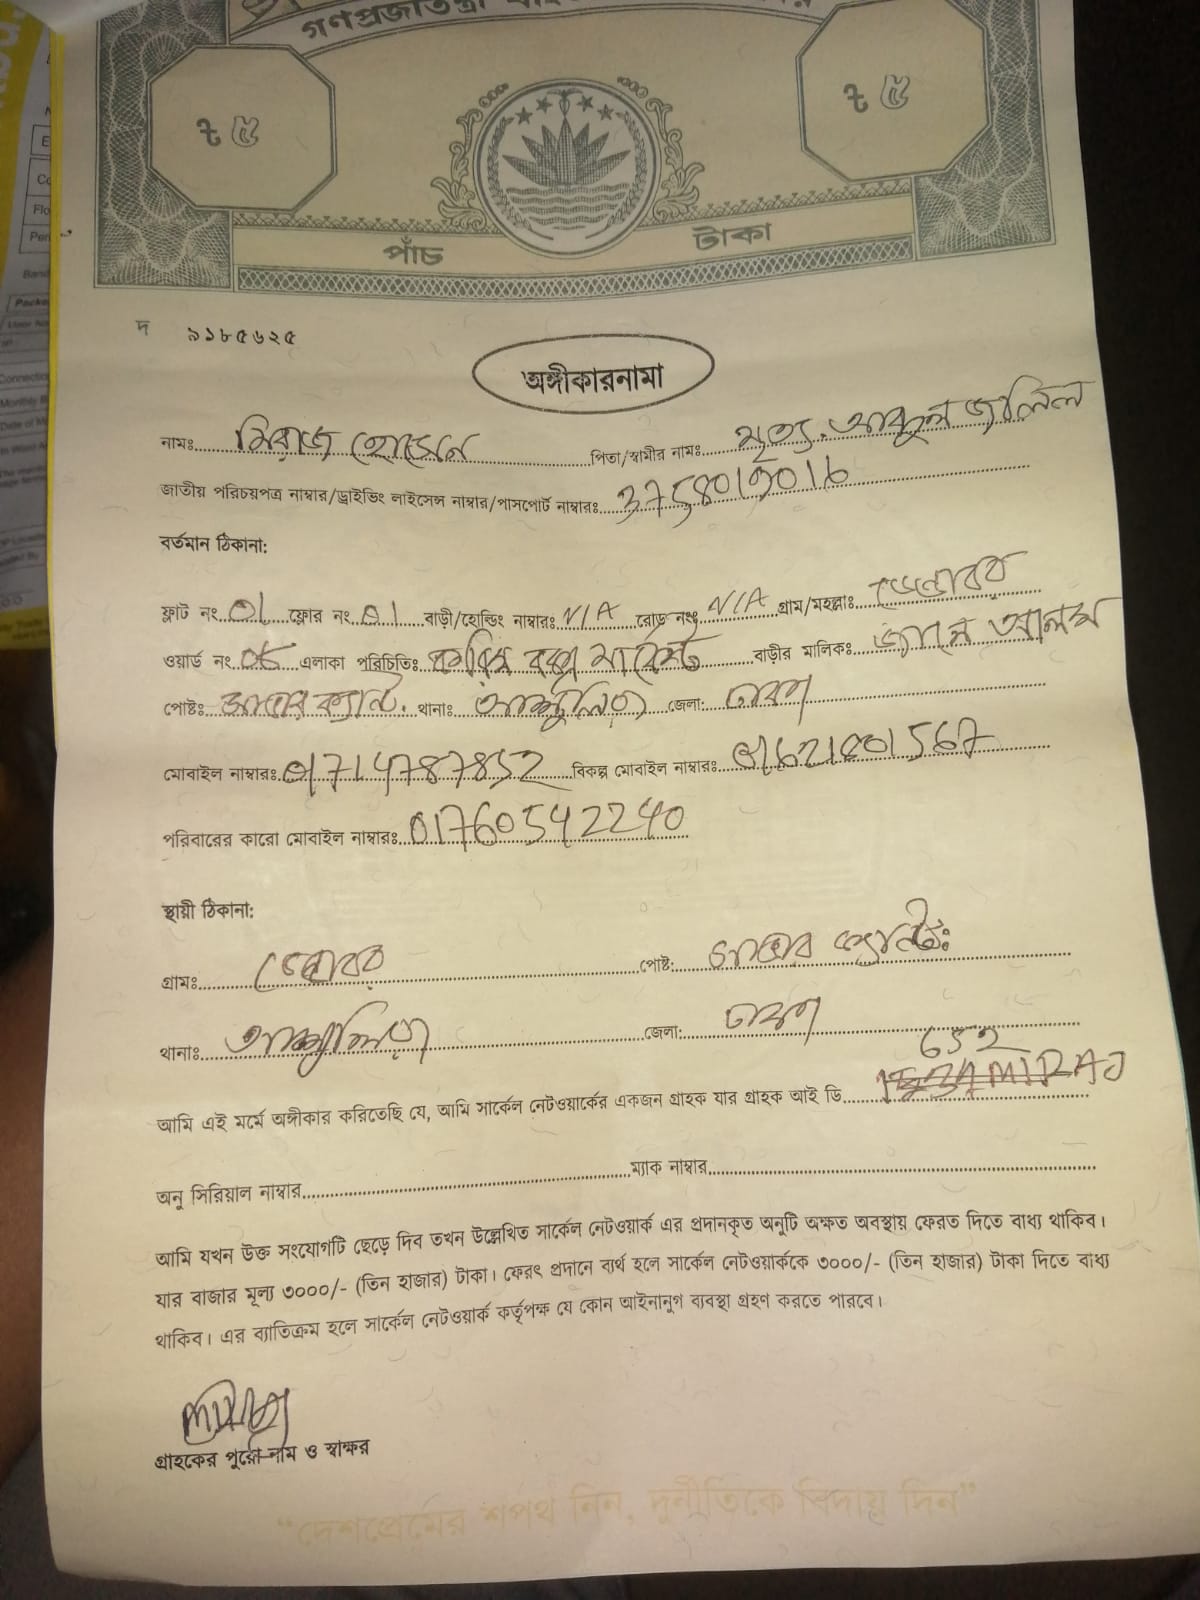 গণপ্রজাতন্ত্রী
৳ ৫
৳ ৫
পাঁচ টাকা
দ ৯১৮৫৬২৫
অঙ্গীকারনামা
নামঃ মিরাজ হোসেন পিতা/স্বামীর নামঃ মৃত্যু. আব্দুল জলিল
জাতীয় পরিচয়পত্র নাম্বার/ড্রাইভিং লাইসেন্স নাম্বার/পাসপোর্ট নাম্বারঃ
বর্তমান ঠিকানা:
ফ্লাট নং 01 ফ্লোর নং 01 বাড়ী/হোল্ডিং নাম্বারঃ N/A রোড নংঃ N/A গ্রাম/মহল্লাঃ
ওয়ার্ড নং 05 এলাকা পরিচিতিঃ মার্কেট বাড়ীর মালিকঃ আলম
পোষ্টঃ সাভার ক্যান্ট. থানাঃ আশুলিয়া জেলা: ঢাকা
মোবাইল নাম্বারঃ 01714787852 বিকল্প মোবাইল নাম্বারঃ
পরিবারের কারো মোবাইল নাম্বারঃ 01760542240
স্থায়ী ঠিকানা:
গ্রামঃ পোষ্ট: সাভার ক্যান্টঃ
থানাঃ আশুলিয়া জেলা: ঢাকা
652
আমি এই মর্মে অঙ্গীকার করিতেছি যে, আমি সার্কেল নেটওয়ার্কের একজন গ্রাহক যার গ্রাহক আই ডি
অনু সিরিয়াল নাম্বার ম্যাক নাম্বার
আমি যখন উক্ত সংযোগটি ছেড়ে দিব তখন উল্লেখিত সার্কেল নেটওয়ার্ক এর প্রদানকৃত অনুটি অক্ষত অবস্থায় ফেরত দিতে বাধ্য থাকিব।
যার বাজার মূল্য ৩০০০/- (তিন হাজার) টাকা। ফেরৎ প্রদানে ব্যর্থ হলে সার্কেল নেটওয়ার্ককে ৩০০০/- (তিন হাজার) টাকা দিতে বাধ্য
থাকিব। এর ব্যাতিক্রম হলে সার্কেল নেটওয়ার্ক কর্তৃপক্ষ যে কোন আইনানুগ ব্যবস্থা গ্রহণ করতে পারবে।
গ্রাহকের পুরো নাম ও স্বাক্ষর
"দেশপ্রেমের শপথ নিন, দুর্নীতিকে বিদায় দিন"